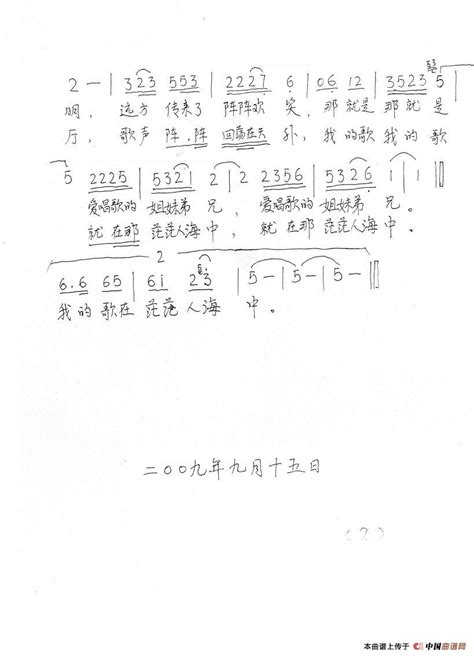 2 — | 323 553 | 22227 6 | 06 12 | 3523 5
明，远方 传来了 阵阵欢 笑，那就是 那就是
厅，歌声 阵阵 回荡在天 外，我的歌我的歌
5 2225 | 5321 2 | 2 2356 | 5326 | 1 | 1 ‖
爱唱歌的 姐妹弟 兄，爱唱歌的 姐妹弟 兄。
就在那 茫茫人海中，就在那 茫茫人海中。
2
6.6 65 | 6i 23 | 5 — | 5 — | 5 — ‖
我的歌在 茫茫人海 中。
二〇〇九年九月十五日
(2)
本曲谱上传于 中国曲谱网